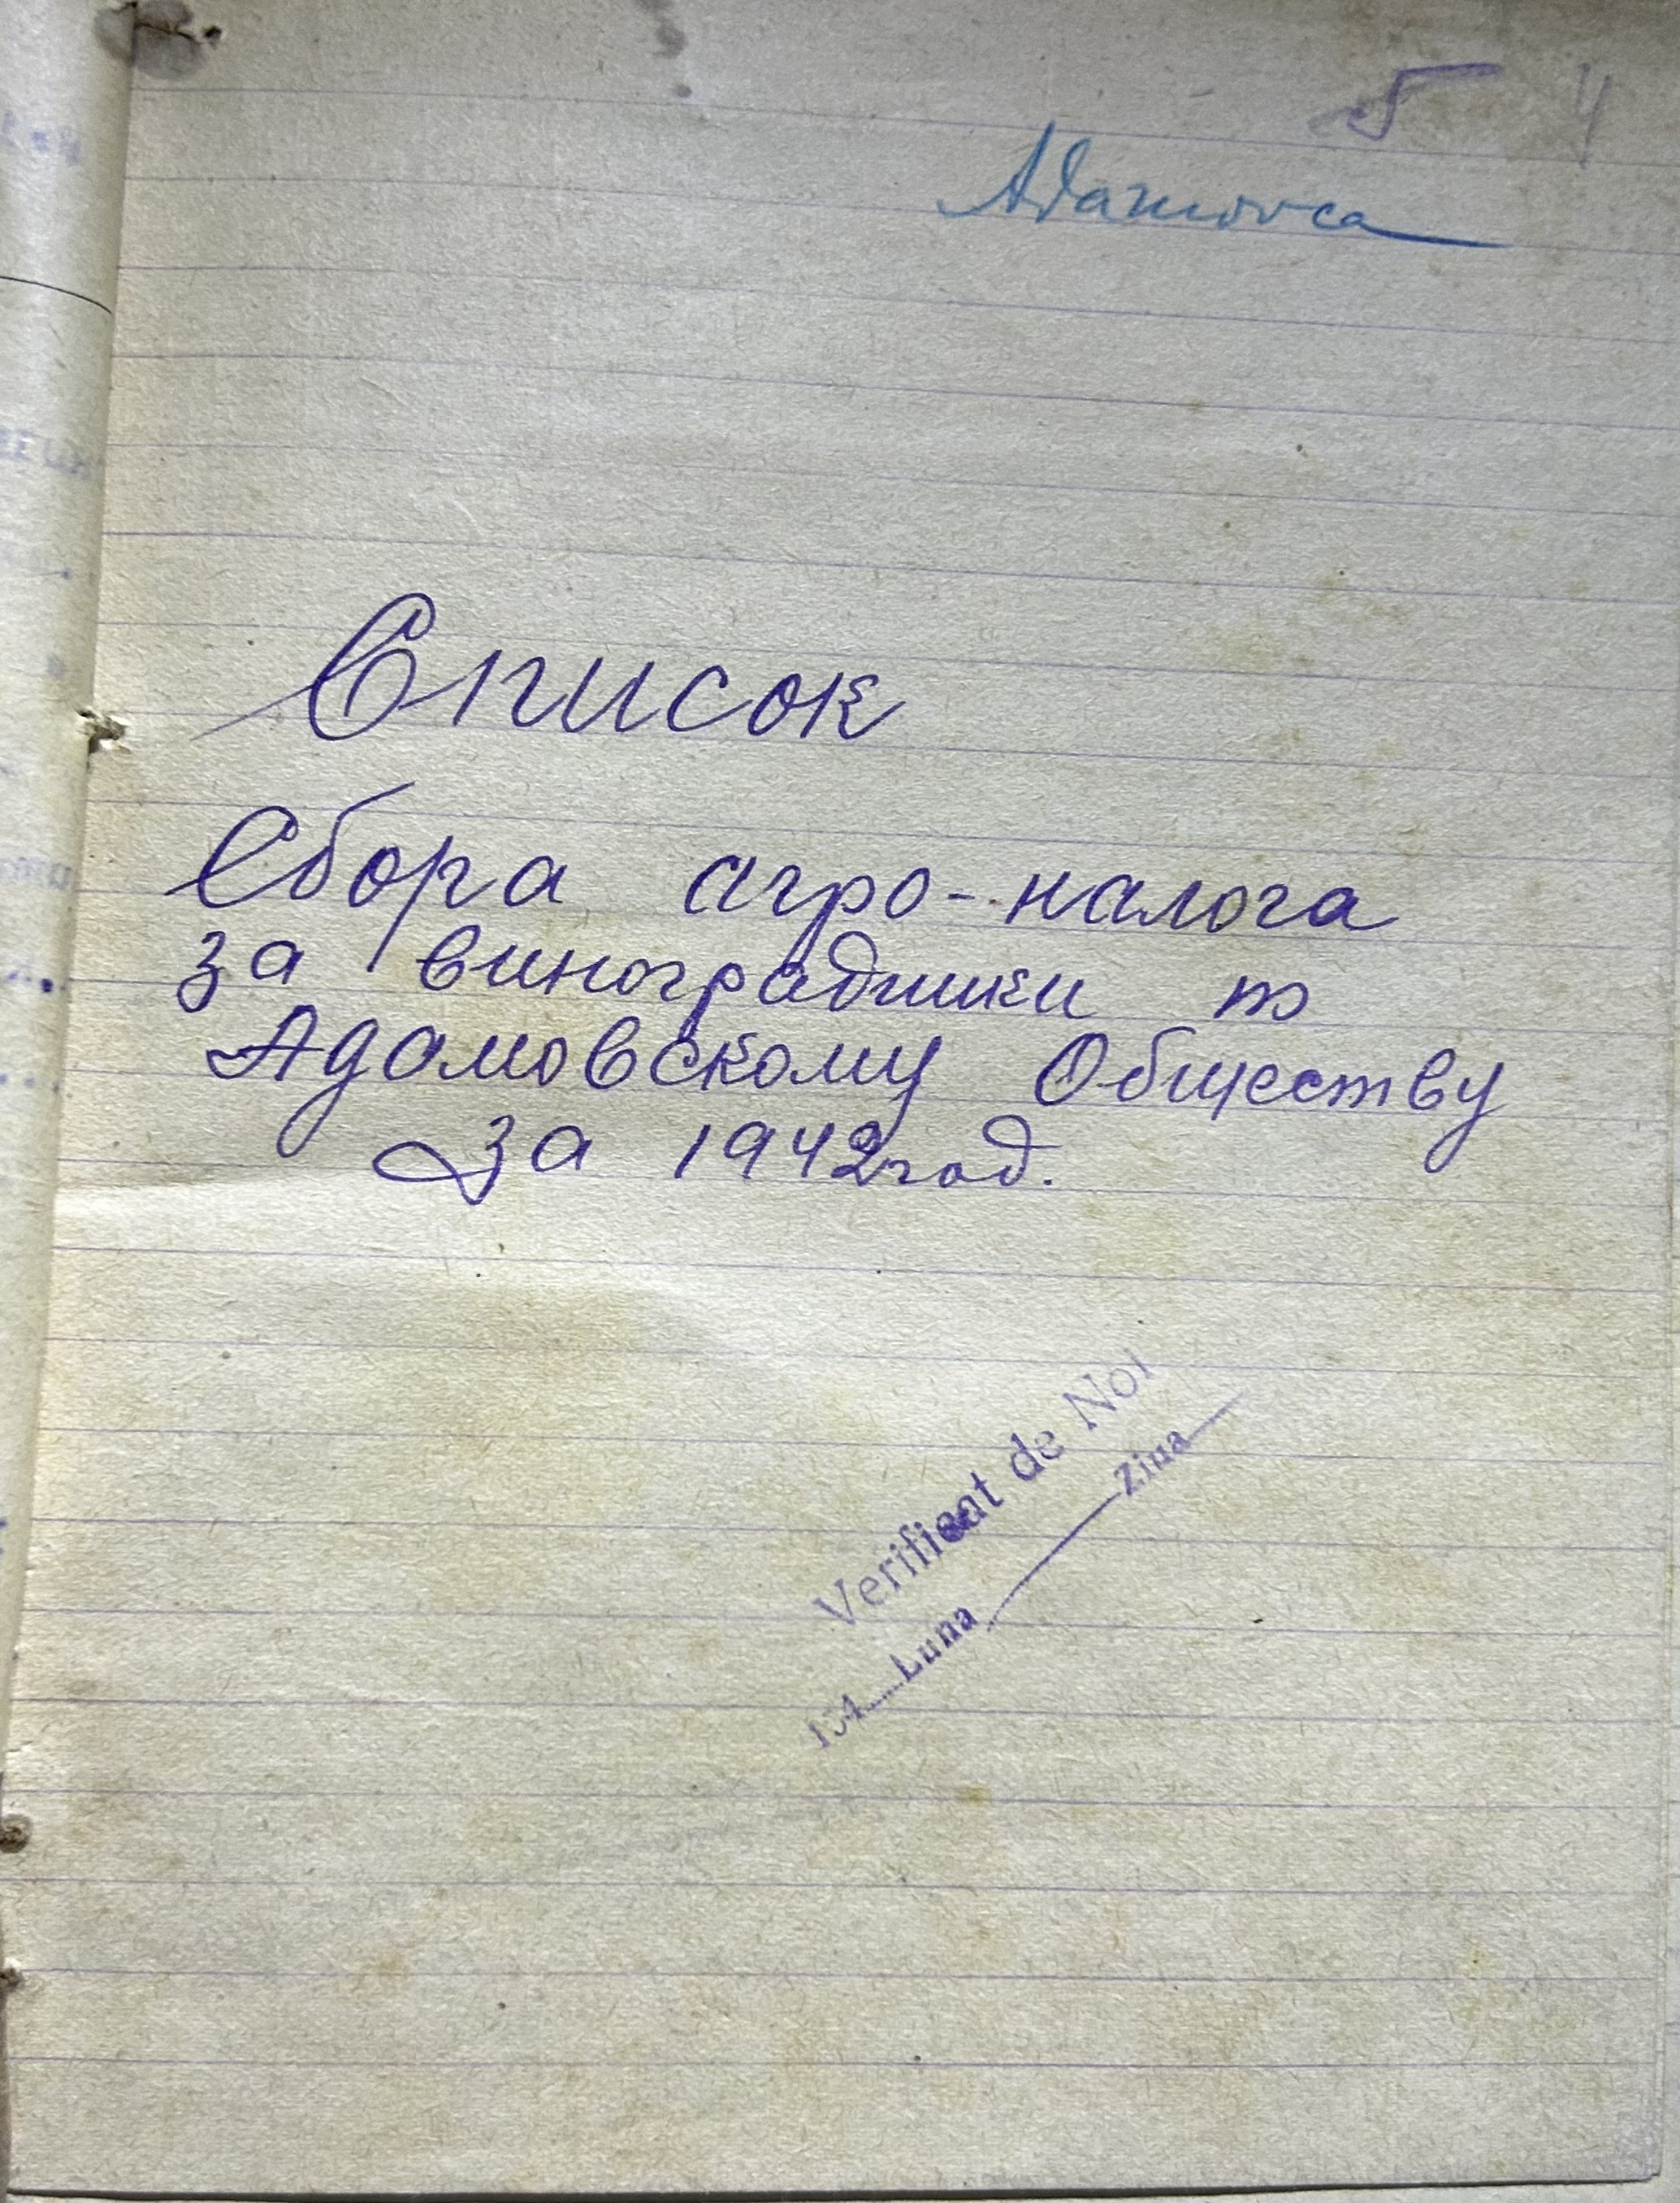 5 4
Adamovca
Список
Сбора агро-налога
за виноградники по
Адамовскому Обществу
за 1942 год.
Verificat de Noi
194 Luna Ziua